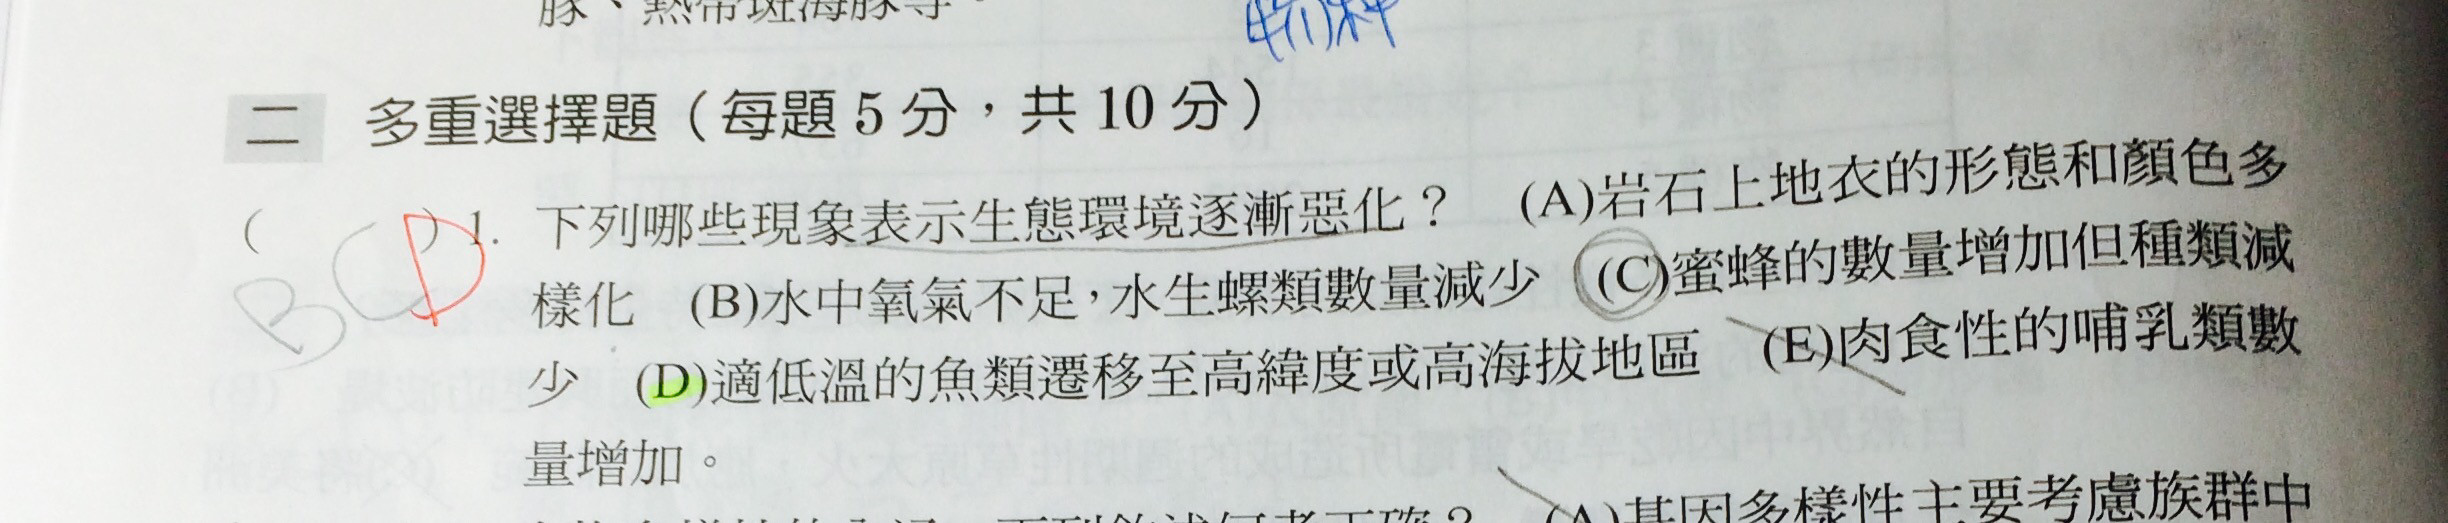 豚、熱帶斑海豚等。
物種
二 多重選擇題（每題5分，共10分）
( ) 1. 下列哪些現象表示生態環境逐漸惡化？ (A)岩石上地衣的形態和顏色多
BCD
樣化 (B)水中氧氣不足，水生螺類數量減少 (C)蜜蜂的數量增加但種類減
少 (D)適低溫的魚類遷移至高緯度或高海拔地區 (E)肉食性的哺乳類數
量增加。
下列敘述何者正確？ (A)基因多樣性主要考慮族群中